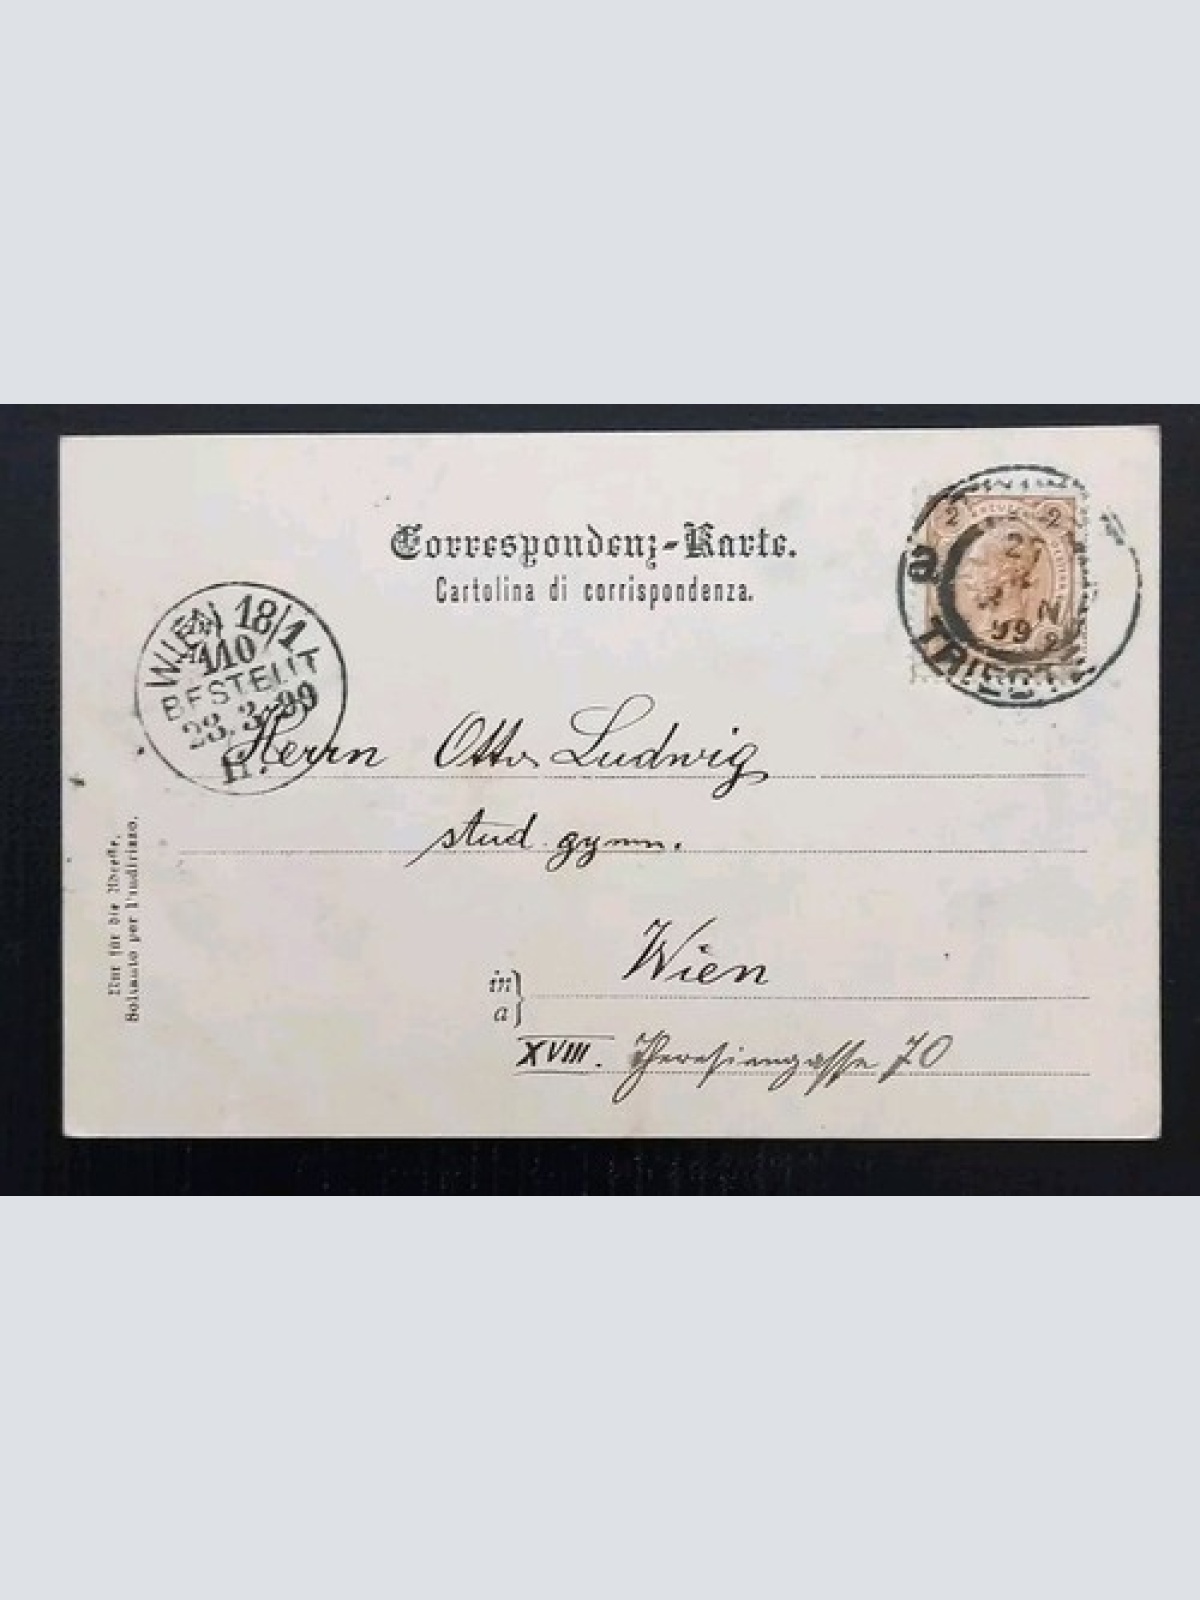 Correspondenz-Karte.
Cartolina di corrispondenza.
2 2
27
3
N
99
2
TRIEST
WIEN 18/1
110
BESTELLT
28. 3. 99
Herrn Otto Ludwig
stud gymn.
in
a
Wien
XVIII. Theresiengasse 70
Nur für die Adresse.
Soltanto per l'indirizzo.